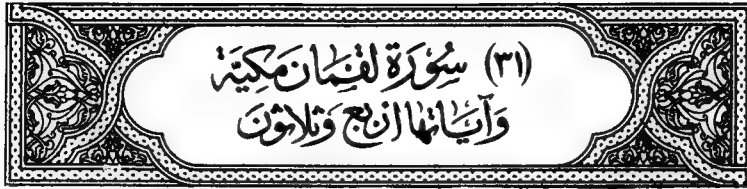 (٣١) سُورَة لقمَان مَكِيَّة
وَآيَاتهَا اربَع وَثلاثونَ